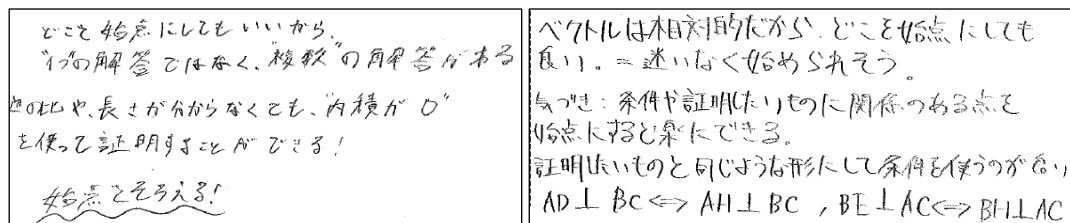 どこを始点にしてもいいから、
"1つ"の解答ではなく、"複数"の解答がある
辺の比や、長さが分からなくても、"内積が0"
を使って証明することができる!
始点をそろえる!
ベクトルは相対的だから、どこを始点にしても
良い。=迷いなく始められそう。
気づき:条件や証明したいものに関係のある点を
始点にすると楽にできる。
証明したいものと同じような形にして条件を使うのが良い
AD⊥BC⇔AH⊥BC, BE⊥AC⇔BH⊥AC